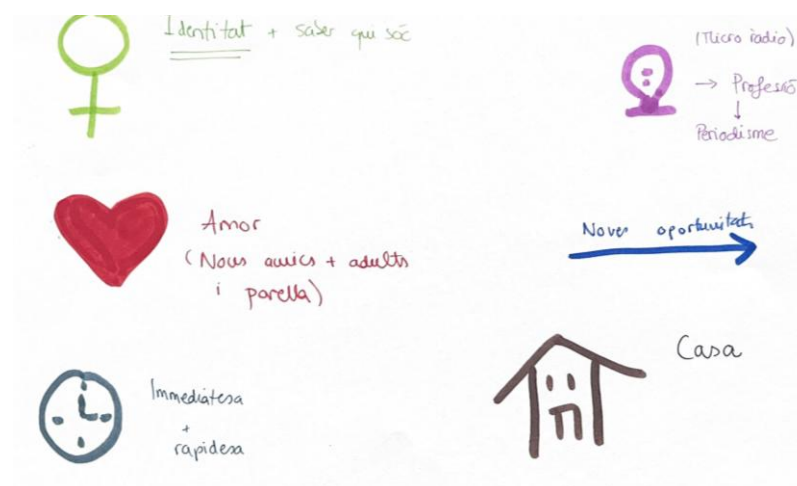 Identitat + saber qui sóc
(Micro ràdio)
→ Professió
↓
Periodisme
Amor
(Nous amics + adults
i parella)
Noves oportunitats
Casa
Immediatesa
+
rapidesa